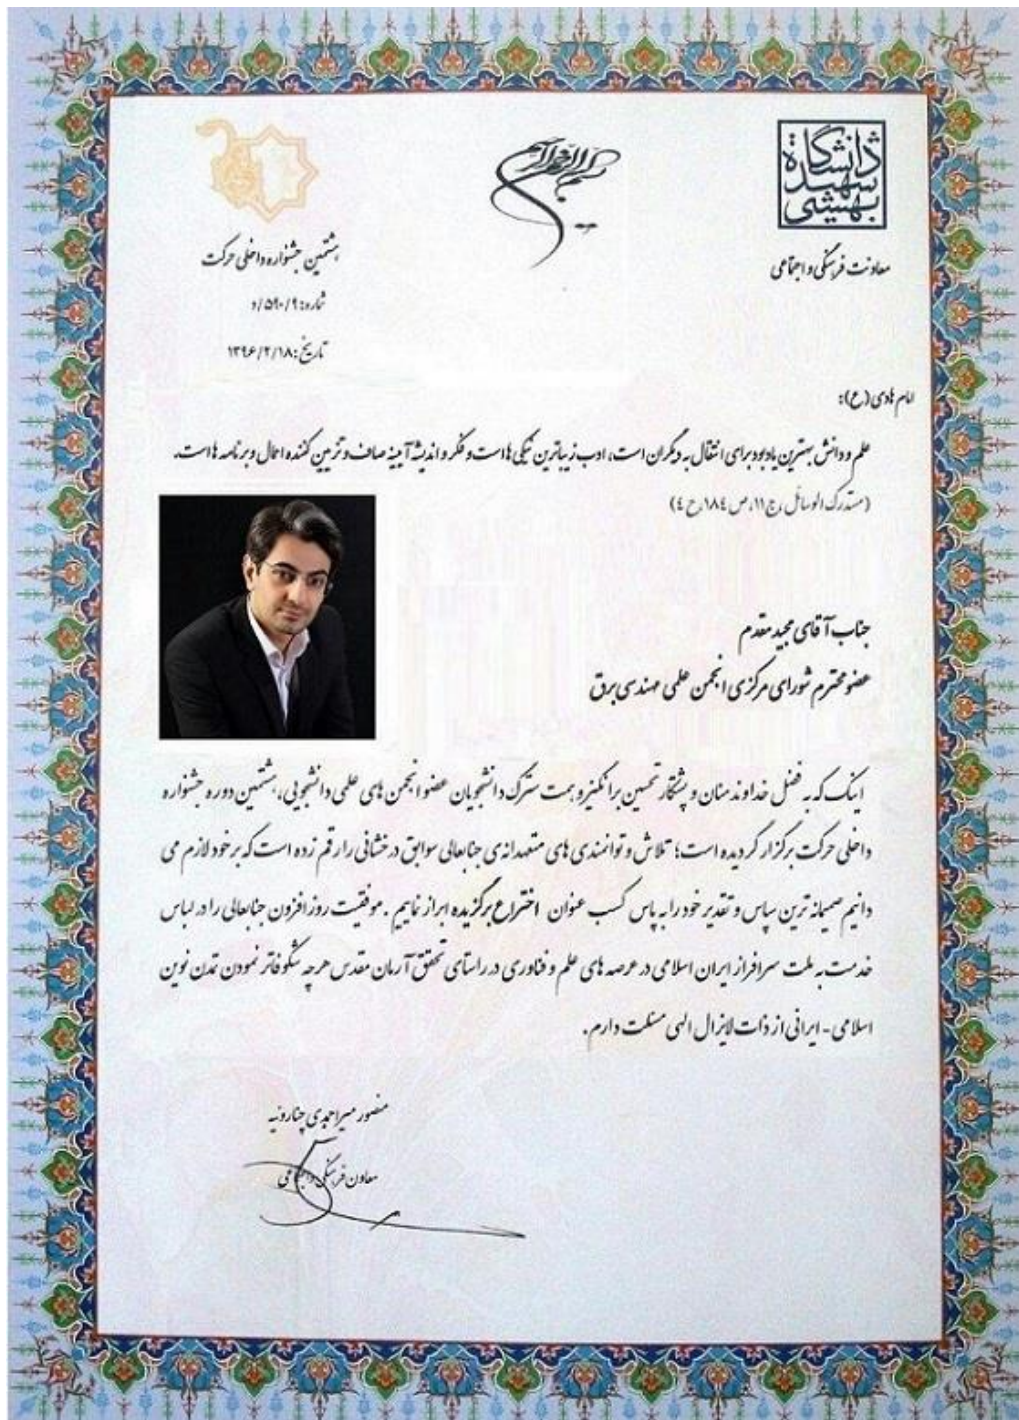 دانشگاه شهید بهشتی
معاونت فرهنگی و اجتماعی
بسم الله الرحمن الرحیم
هشتمین جشنواره داخلی حرکت
شماره: ۵۹۰/۹/د
تاریخ: ۱۳۹۶/۲/۱۸
امام هادی (ع):
علم و دانش بهترین یادبود برای انتقال به دیگران است، ادب زیباترین نیکی ها است و فکر و اندیشه آیینه صاف و تزیین کننده اعمال و برنامه ها است.
(مستدرک الوسائل، ج ۱۱، ص ۱۸٤، ح ٤)
جناب آقای مجید مقدم
عضو محترم شورای مرکزی انجمن علمی مهندسی برق
اینک که به فضل خداوند منان و پشتکار تحسین برانگیز و همت سترگ دانشجویان عضو انجمن های علمی دانشجویی، هشتمین دوره جشنواره
داخلی حرکت برگزار گردیده است؛ تلاش و توانمندی های متعهدانه ی جنابعالی سوابق درخشانی را رقم زده است که بر خود لازم می
دانیم صمیمانه ترین سپاس و تقدیر خود را به پاس کسب عنوان اختراع برگزیده ابراز نماییم . موفقیت روز افزون جنابعالی را در لباس
خدمت به ملت سرافراز ایران اسلامی در عرصه های علم و فناوری در راستای تحقق آرمان مقدس هرچه شکوفاتر نمودن تمدن نوین
اسلامی - ایرانی از ذات لایزال الهی مسئلت دارم.
منصور میراحمدی چناروئیه
معاون فرهنگی و اجتماعی